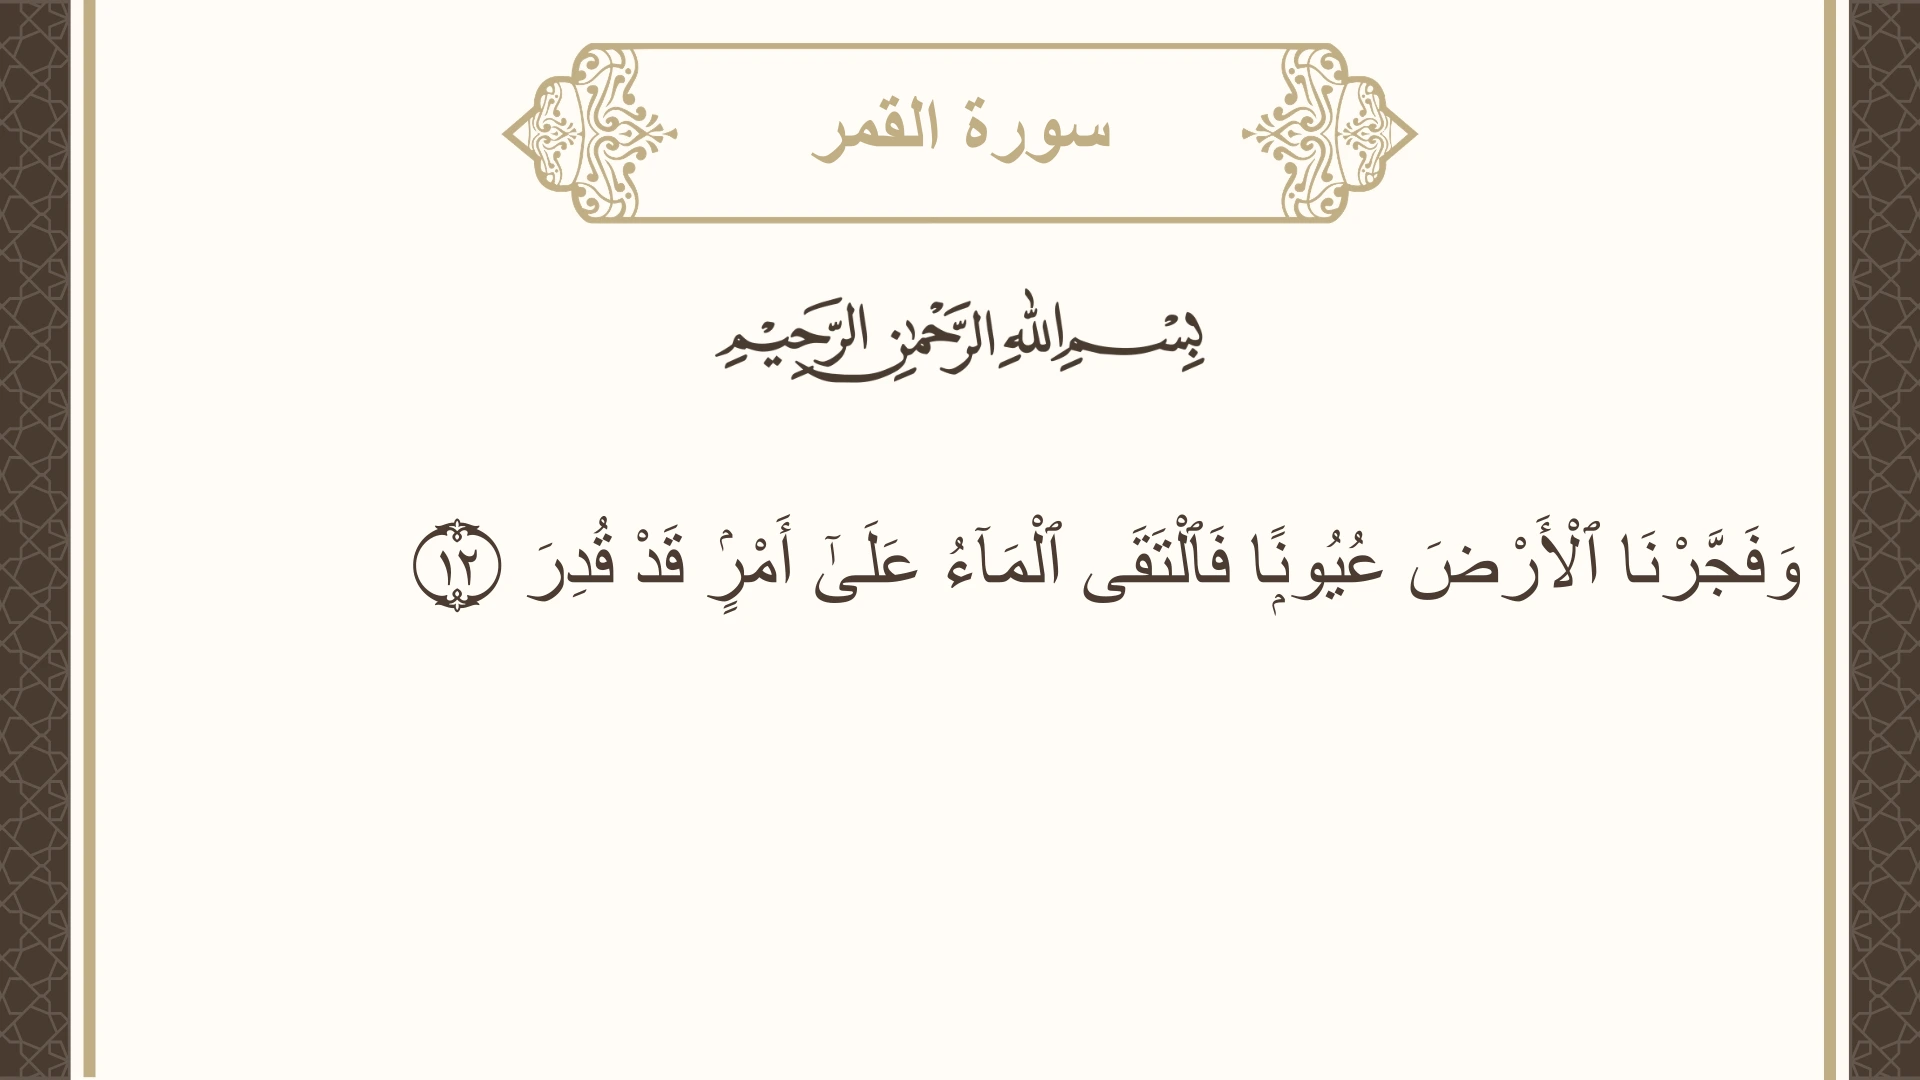 سورة القمر
بِسْمِ اللهِ الرَّحْمٰنِ الرَّحِيْمِ
وَفَجَّرْنَا ٱلْأَرْضَ عُيُونًۭا فَٱلْتَقَى ٱلْمَآءُ عَلَىٰٓ أَمْرٍۢ قَدْ قُدِرَ ١٢